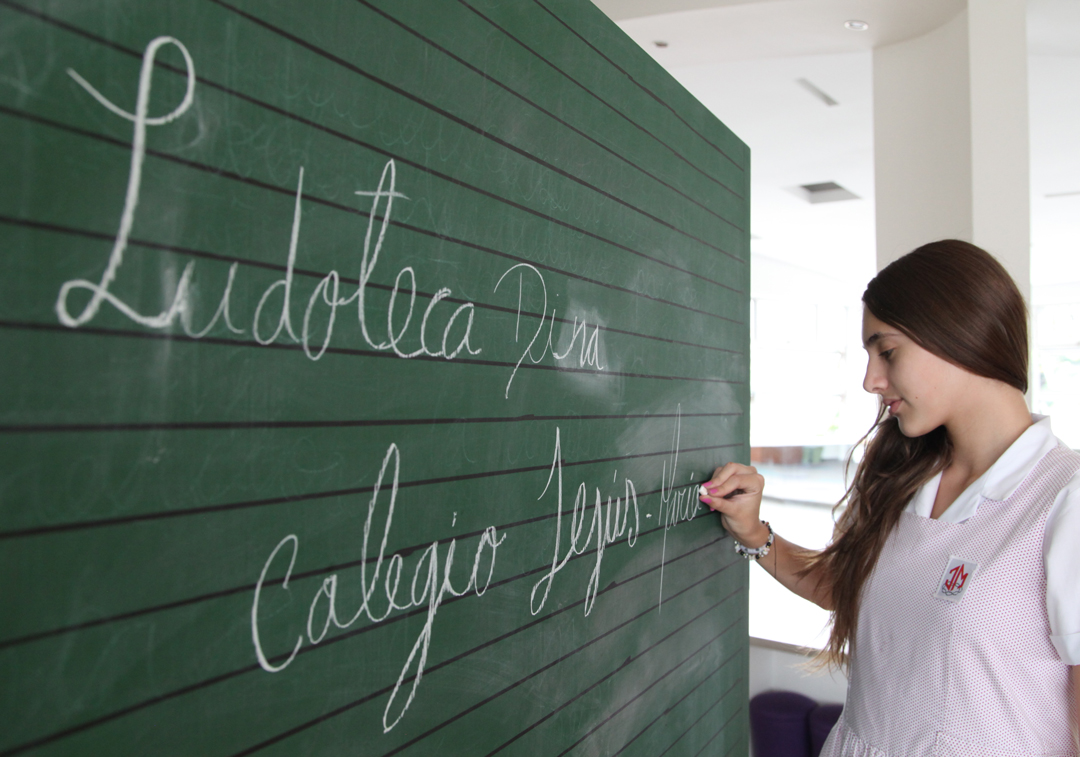 Ludoteca Dina
Colegio Jesús-María
JM